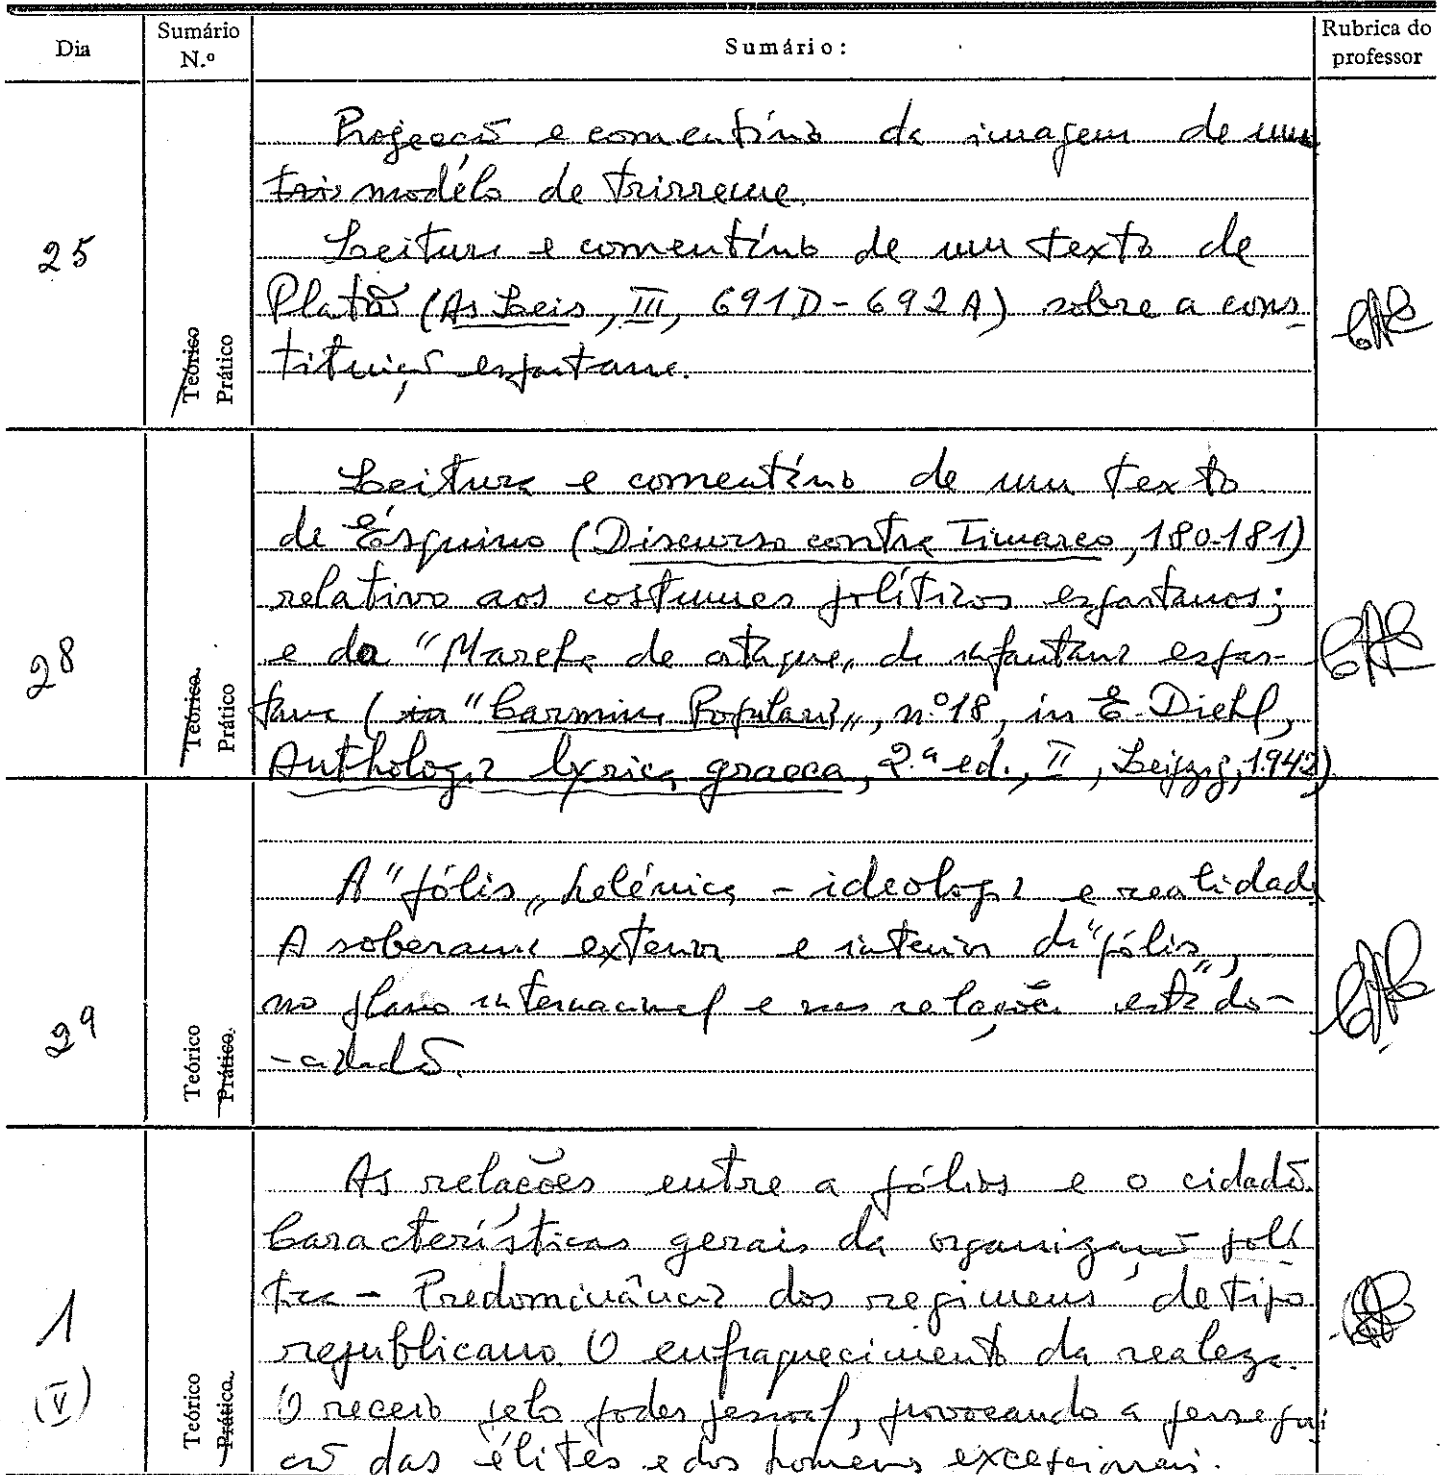 Dia
Sumário N.º
Sumário:
Rubrica do professor
25
Teórico
Prático
Projecção e comentário da imagem de um
tris modêlo de trirreme.
Leitura e comentário de um texto de
Platão (As Leis, III, 691D-692A) sobre a cons-
tituição espartana.
28
Teórico
Prático
Leitura e comentário de um texto
de Ésquino (Discurso contra Timarco, 180-181)
relativo aos costumes políticos espartanos;
e da "Marcha de ataque" da infantaria espar-
tana (in "Carmina Popularia", n.º 18, in E. Diehl,
Anthologia lyrica graeca, 2.ª ed., II, Leipzig, 1942)
29
Teórico
Prático
A "pólis" helénica - ideologia e realidade
A soberania exterior e interior da "pólis",
no plano internacional e nas relações estado-
-cidadão.
1
(V)
Teórico
Prático
As relações entre a pólis e o cidadão.
Características gerais da organização polí
tica - Predominância dos regimens de tipo
republicano. O enfraquecimento da realeza.
O receio pelo poder pessoal, provocando a persegui
ção das élites e dos homens excepcionais.